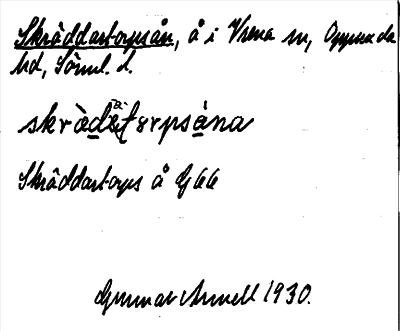 Skräddartorpsån, å i Vrena sn, Oppunda
hd, Sörml. l.
skrädatårpsåna
Skräddartorps å G 66
Gunnar Arnell 1930.